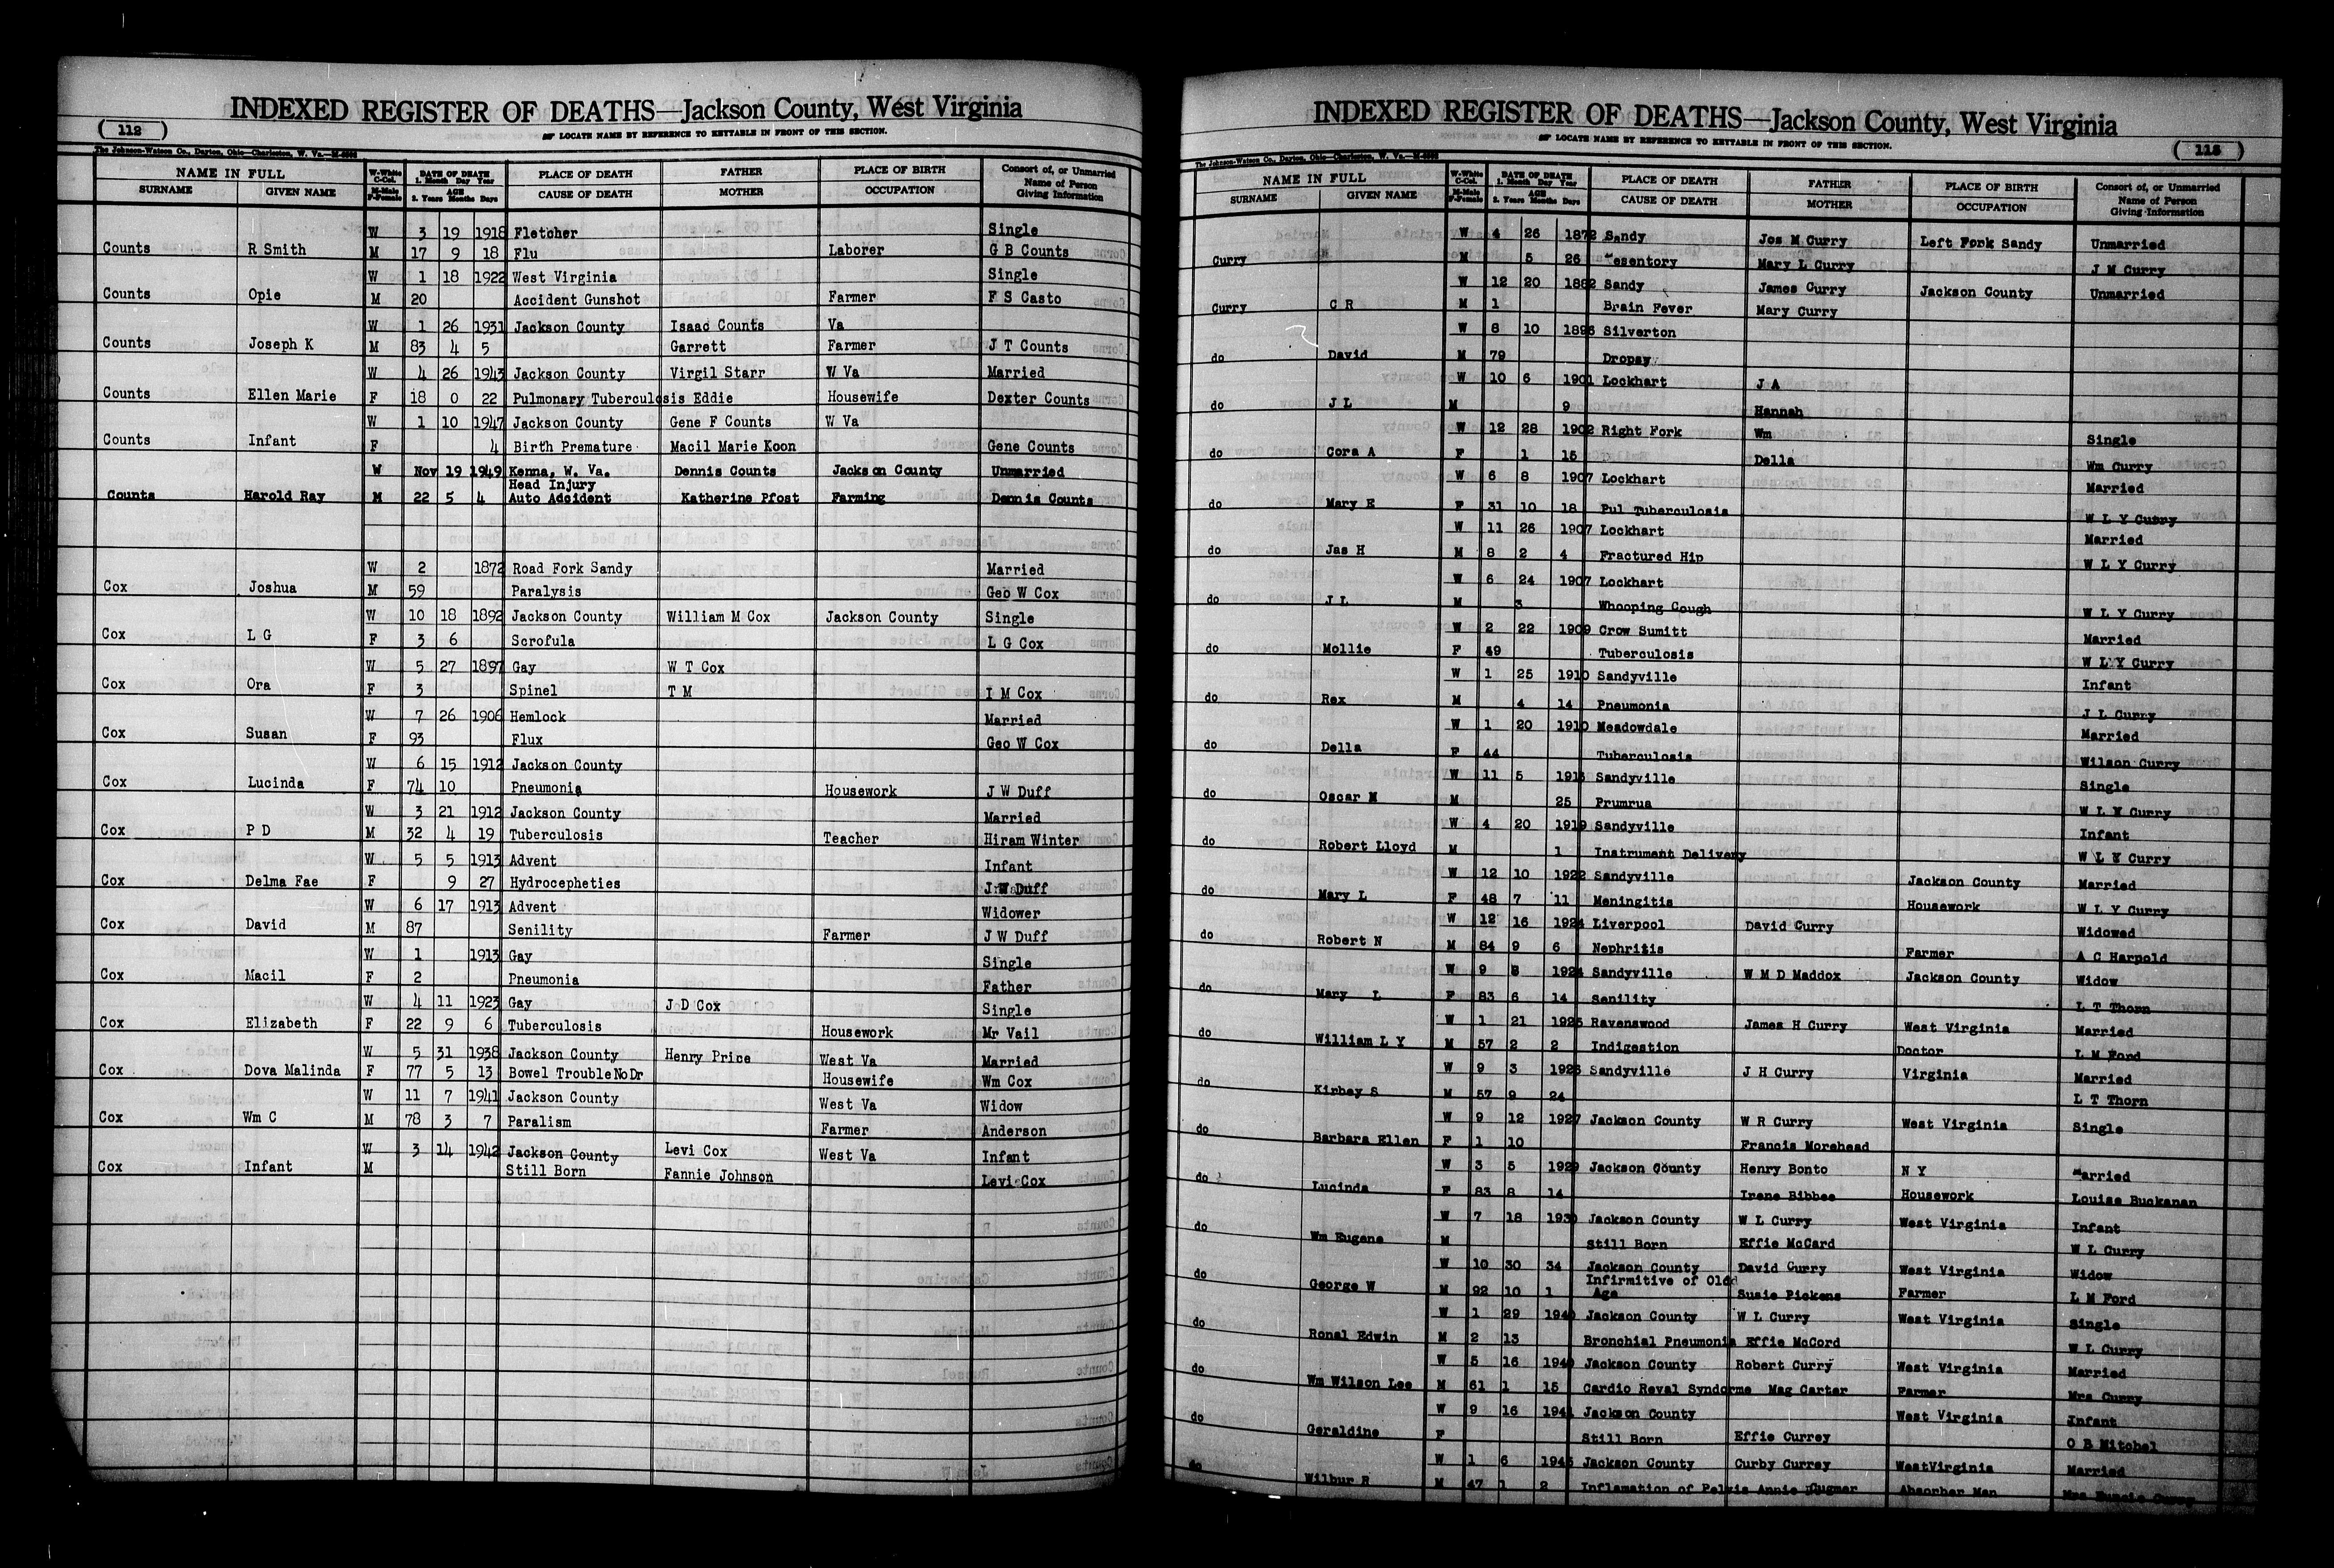 INDEXED REGISTER OF DEATHS—Jackson County, West Virginia
( 112 )
LOCATE NAME BY REFERENCE TO KEYTABLE IN FRONT OF THIS SECTION.
The Johnson-Watson Co., Dayton, Ohio—Charleston, W. Va.
NAME IN FULL W-White C-Col. DATE OF DEATH 1. Month Day Year PLACE OF DEATH FATHER PLACE OF BIRTH Consort of, or Unmarried
SURNAME GIVEN NAME M-Male F-Female AGE 2. Years Months Days CAUSE OF DEATH MOTHER OCCUPATION Name of Person Giving Information
W 3 19 1918 Fletcher Single
Counts R Smith M 17 9 18 Flu Laborer G B Counts
W 1 18 1922 West Virginia Single
Counts Opie M 20 Accident Gunshot Farmer F S Casto
W 1 26 1931 Jackson County Isaac Counts Va
Counts Joseph K M 83 4 5 Garrett Farmer J T Counts
W 4 26 1943 Jackson County Virgil Starr W Va Married
Counts Ellen Marie F 18 0 22 Pulmonary Tuberculosis Eddie Housewife Dexter Counts
W 1 10 1947 Jackson County Gene F Counts W Va
Counts Infant F 4 Birth Premature Macil Marie Koon Gene Counts
W Nov 19 1949 Kenna, W. Va. Dennis Counts Jackson County Unmarried
Head Injury
Counts Harold Ray M 22 5 4 Auto Accident Katherine Pfost Farming Dennis Counts
W 2 1872 Road Fork Sandy Married
Cox Joshua M 59 Paralysis Geo W Cox
W 10 18 1892 Jackson County William M Cox Jackson County Single
Cox L G F 3 6 Scrofula L G Cox
W 5 27 1897 Gay W T Cox
Cox Ora F 3 Spinel T M I M Cox
W 7 26 1906 Hemlock Married
Cox Susan F 93 Flux Geo W Cox
W 6 15 1912 Jackson County
Cox Lucinda F 74 10 Pneumonia Housework J W Duff
W 3 21 1912 Jackson County Married
Cox P D M 32 4 19 Tuberculosis Teacher Hiram Winter
W 5 5 1913 Advent Infant
Cox Delma Fae F 9 27 Hydrocepheties J W Duff
W 6 17 1913 Advent Widower
Cox David M 87 Senility Farmer J W Duff
W 1 1913 Gay Single
Cox Macil F 2 Pneumonia Father
W 4 11 1923 Gay J D Cox Single
Cox Elizabeth F 22 9 6 Tuberculosis Housework Mr Vail
W 5 31 1938 Jackson County Henry Price West Va Married
Cox Dova Malinda F 77 5 13 Bowel Trouble No Dr Housewife Wm Cox
W 11 7 1941 Jackson County West Va Widow
Cox Wm C M 78 3 7 Paralism Farmer Anderson
W 3 14 1942 Jackson County Levi Cox West Va Infant
Cox Infant M Still Born Fannie Johnson Levi Cox
INDEXED REGISTER OF DEATHS—Jackson County, West Virginia
LOCATE NAME BY REFERENCE TO KEYTABLE IN FRONT OF THIS SECTION.
The Johnson-Watson Co., Dayton, Ohio—Charleston, W. Va.
NAME IN FULL W-White C-Col. DATE OF DEATH 1. Month Day Year PLACE OF DEATH FATHER PLACE OF BIRTH Consort of, or Unmarried
SURNAME GIVEN NAME M-Male F-Female AGE 2. Years Months Days CAUSE OF DEATH MOTHER OCCUPATION Name of Person Giving Information
W 4 26 1872 Sandy Jos M Curry Left Fork Sandy Unmarried
Curry M 5 26 Mary L Curry J M Curry
W 12 20 1882 Sandy James Curry Jackson County Unmarried
Curry C R M 1 Brain Fever Mary Curry
W 8 10 1896 Silverton
do David M 79 Dropsy
W 10 6 1901 Lockhart J A
do J L M 9 Hannah
W 12 28 1902 Right Fork Wm Single
do Cora A F 1 15 Della Wm Curry
W 6 8 1907 Lockhart Married
do Mary E F 31 10 18 Pul Tuberculosis W L Y Curry
W 11 26 1907 Lockhart Married
do Jas H M 8 2 4 Fractured Hip W L Y Curry
W 6 24 1907 Lockhart
do J L M 3 Whooping Cough W L Y Curry
W 2 22 1909 Crow Sumitt Married
do Mollie F 49 Tuberculosis W L Y Curry
W 1 25 1910 Sandyville Infant
do Rex M 4 14 Pneumonia J L Curry
W 1 20 1910 Meadowdale Married
do Della F 44 Tuberculosis Wilson Curry
W 11 5 Sandyville Single
do Oscar M M 25 Prumrua W L Y Curry
W 4 20 1919 Sandyville Infant
do Robert Lloyd M 1 Instrument Delivery W L Y Curry
W 12 10 1922 Sandyville Jackson County Married
do Mary L F 48 7 11 Meningitis Housework W L Y Curry
W 12 16 1924 Liverpool David Curry Widowed
do Robert N M 84 9 6 Nephritis Farmer A C Harpold
W 9 8 1924 Sandyville W M D Maddox Jackson County Widow
do Mary L F 83 6 14 Senility L T Thorn
W 1 21 1925 Ravenswood James H Curry West Virginia Married
do William L Y M 57 2 2 Indigestion Doctor L M Ford
W 9 3 Sandyville J H Curry Virginia Married
do Kirbey S M 57 9 24 L T Thorn
W 9 12 1927 Jackson County W R Curry West Virginia Single
do Barbara Ellen F 1 10 Francis Morehead
W 3 5 1929 Jackson County Henry Bonto N Y Married
do Lucinda F 83 8 14 Irene Bibbee Housework Louise Buckanan
W 7 18 1930 Jackson County W L Curry West Virginia Infant
do Wm Eugene M Still Born Effie McCard W L Curry
W 10 30 34 Jackson County David Curry West Virginia Widow
Infirmitive of Old
do George W M 92 10 1 Age Susie Pickens Farmer L M Ford
W 1 29 1940 Jackson County W L Curry West Virginia Single
do Ronal Edwin M 2 13 Bronchial Pneumonia Effie McCord W L Curry
W 5 16 1940 Jackson County Robert Curry West Virginia Married
do Wm Wilson Lee M 61 1 15 Cardio Reval Syndorme Mag Carter Farmer Mrs Curry
W 9 16 1941 Jackson County West Virginia Infant
do Geraldine F Still Born Effie Currey O B Mitchel
W 1 6 Jackson County Curby Currey WestVirginia Married
do Wilbur R M 47 1 2 Inflamation of Pelvis Annie Absorber Man